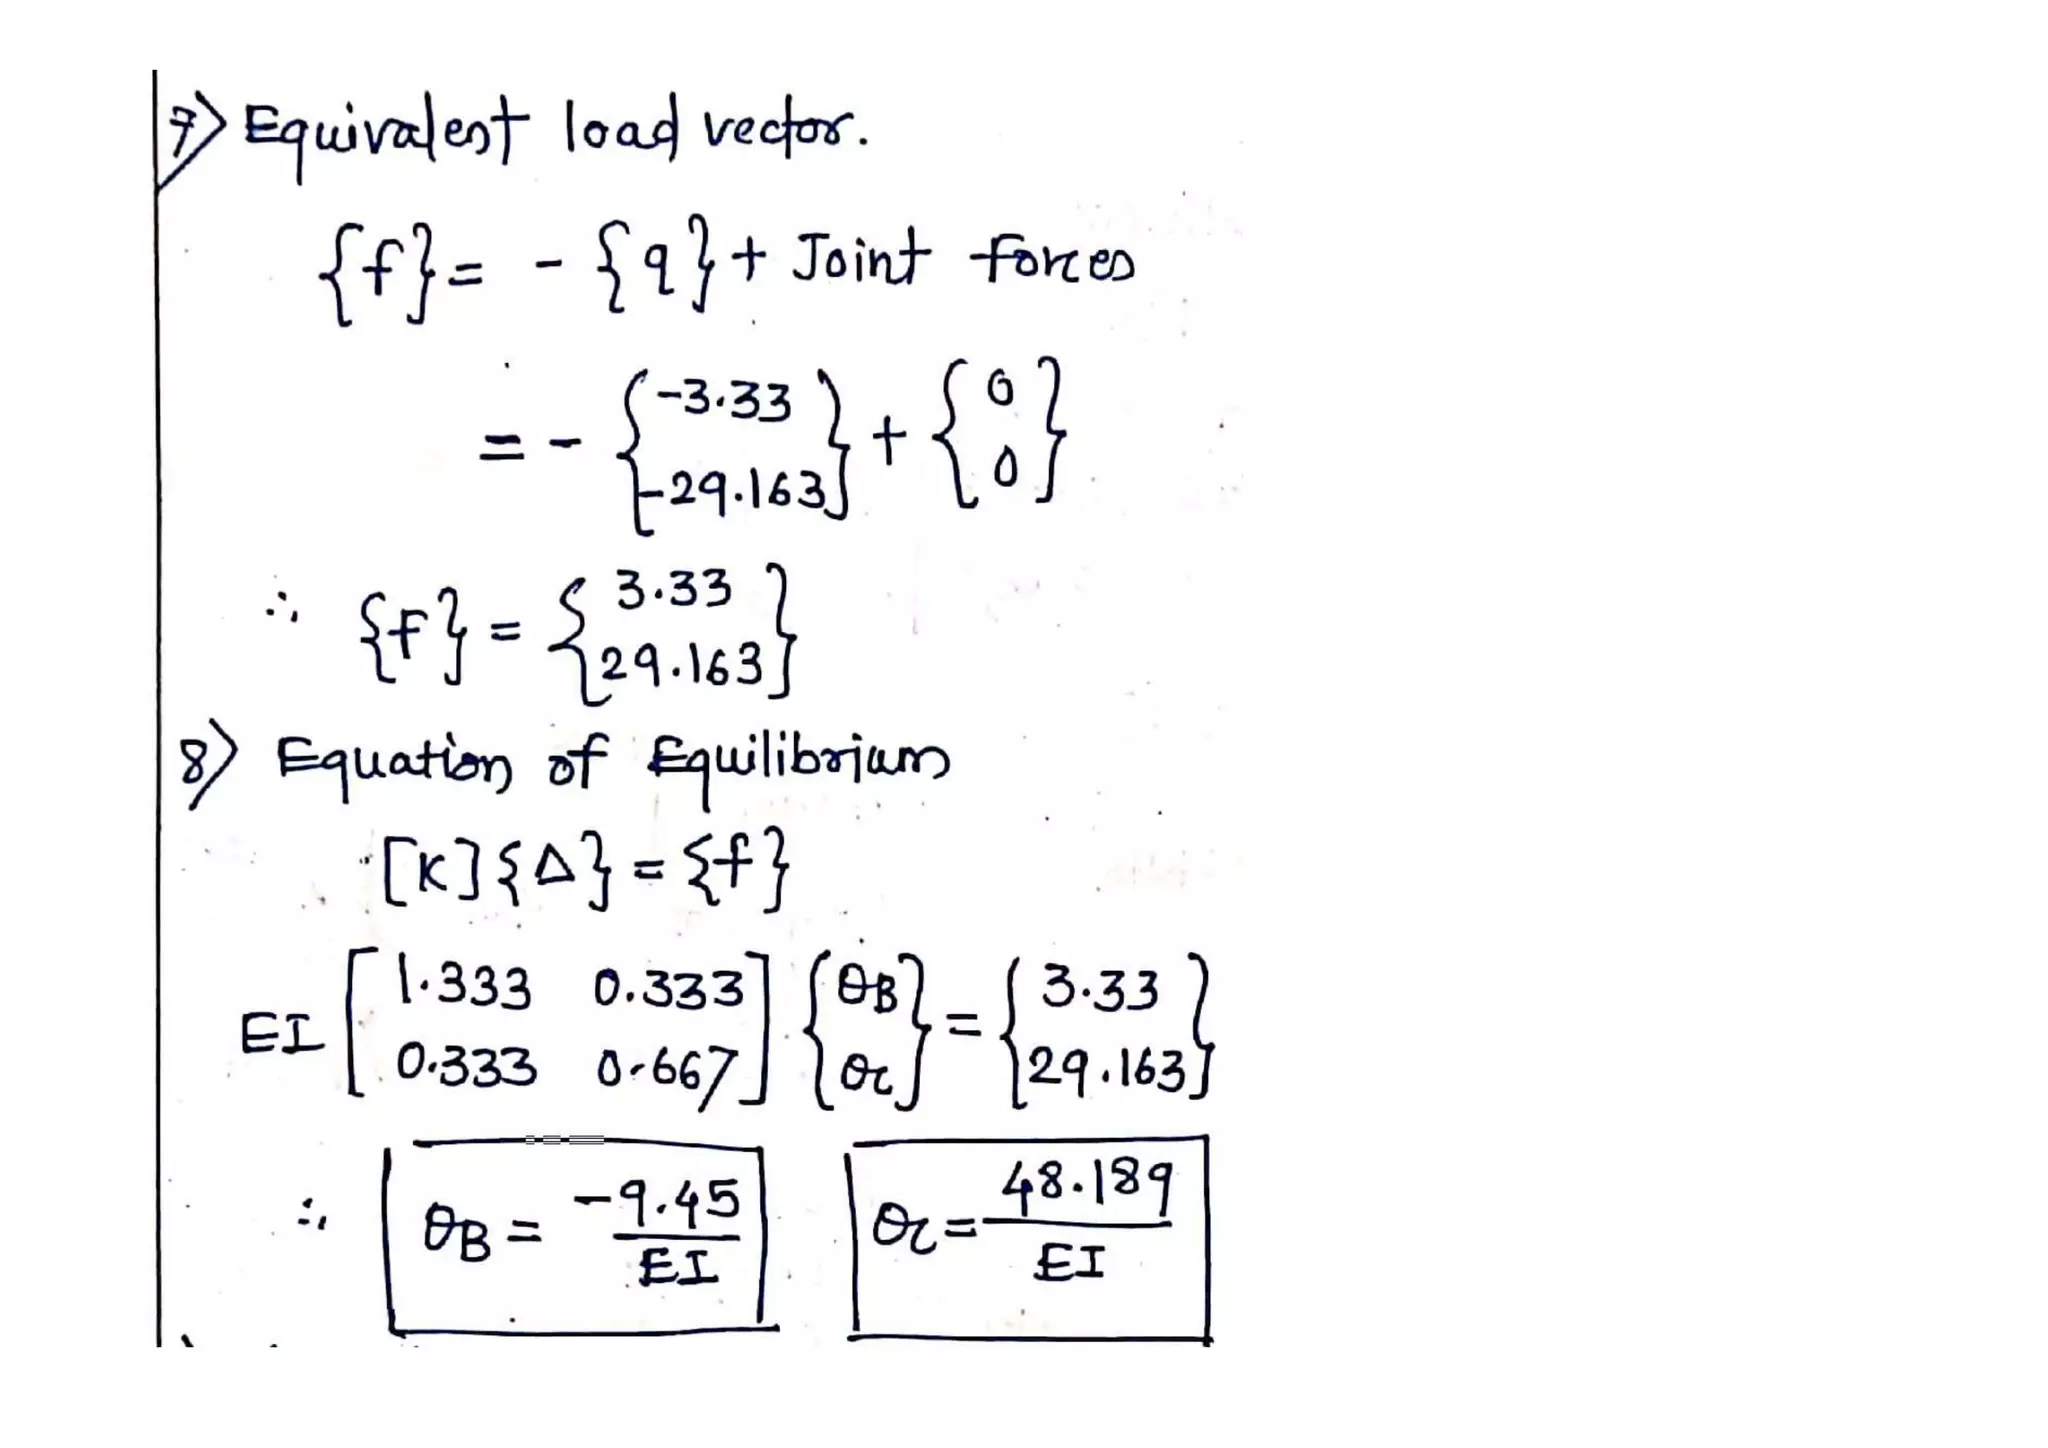 7) Equivalent load vector.
{f} = - {q} + Joint forces
= - {-3.33 -29.163} + {0 0}
∴ {f} = {3.33 29.163}
8) Equation of Equilibrium
[K]{Δ} = {f}
EI [1.333 0.333 0.333 0.667] {θB θc} = {3.33 29.163}
∴ θB = -9.45/EI θc = 48.189/EI